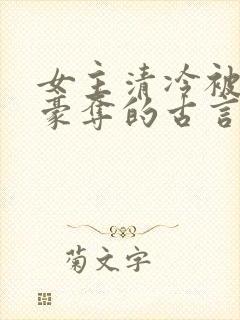 女主清冷被
豪夺的古言
菊文字